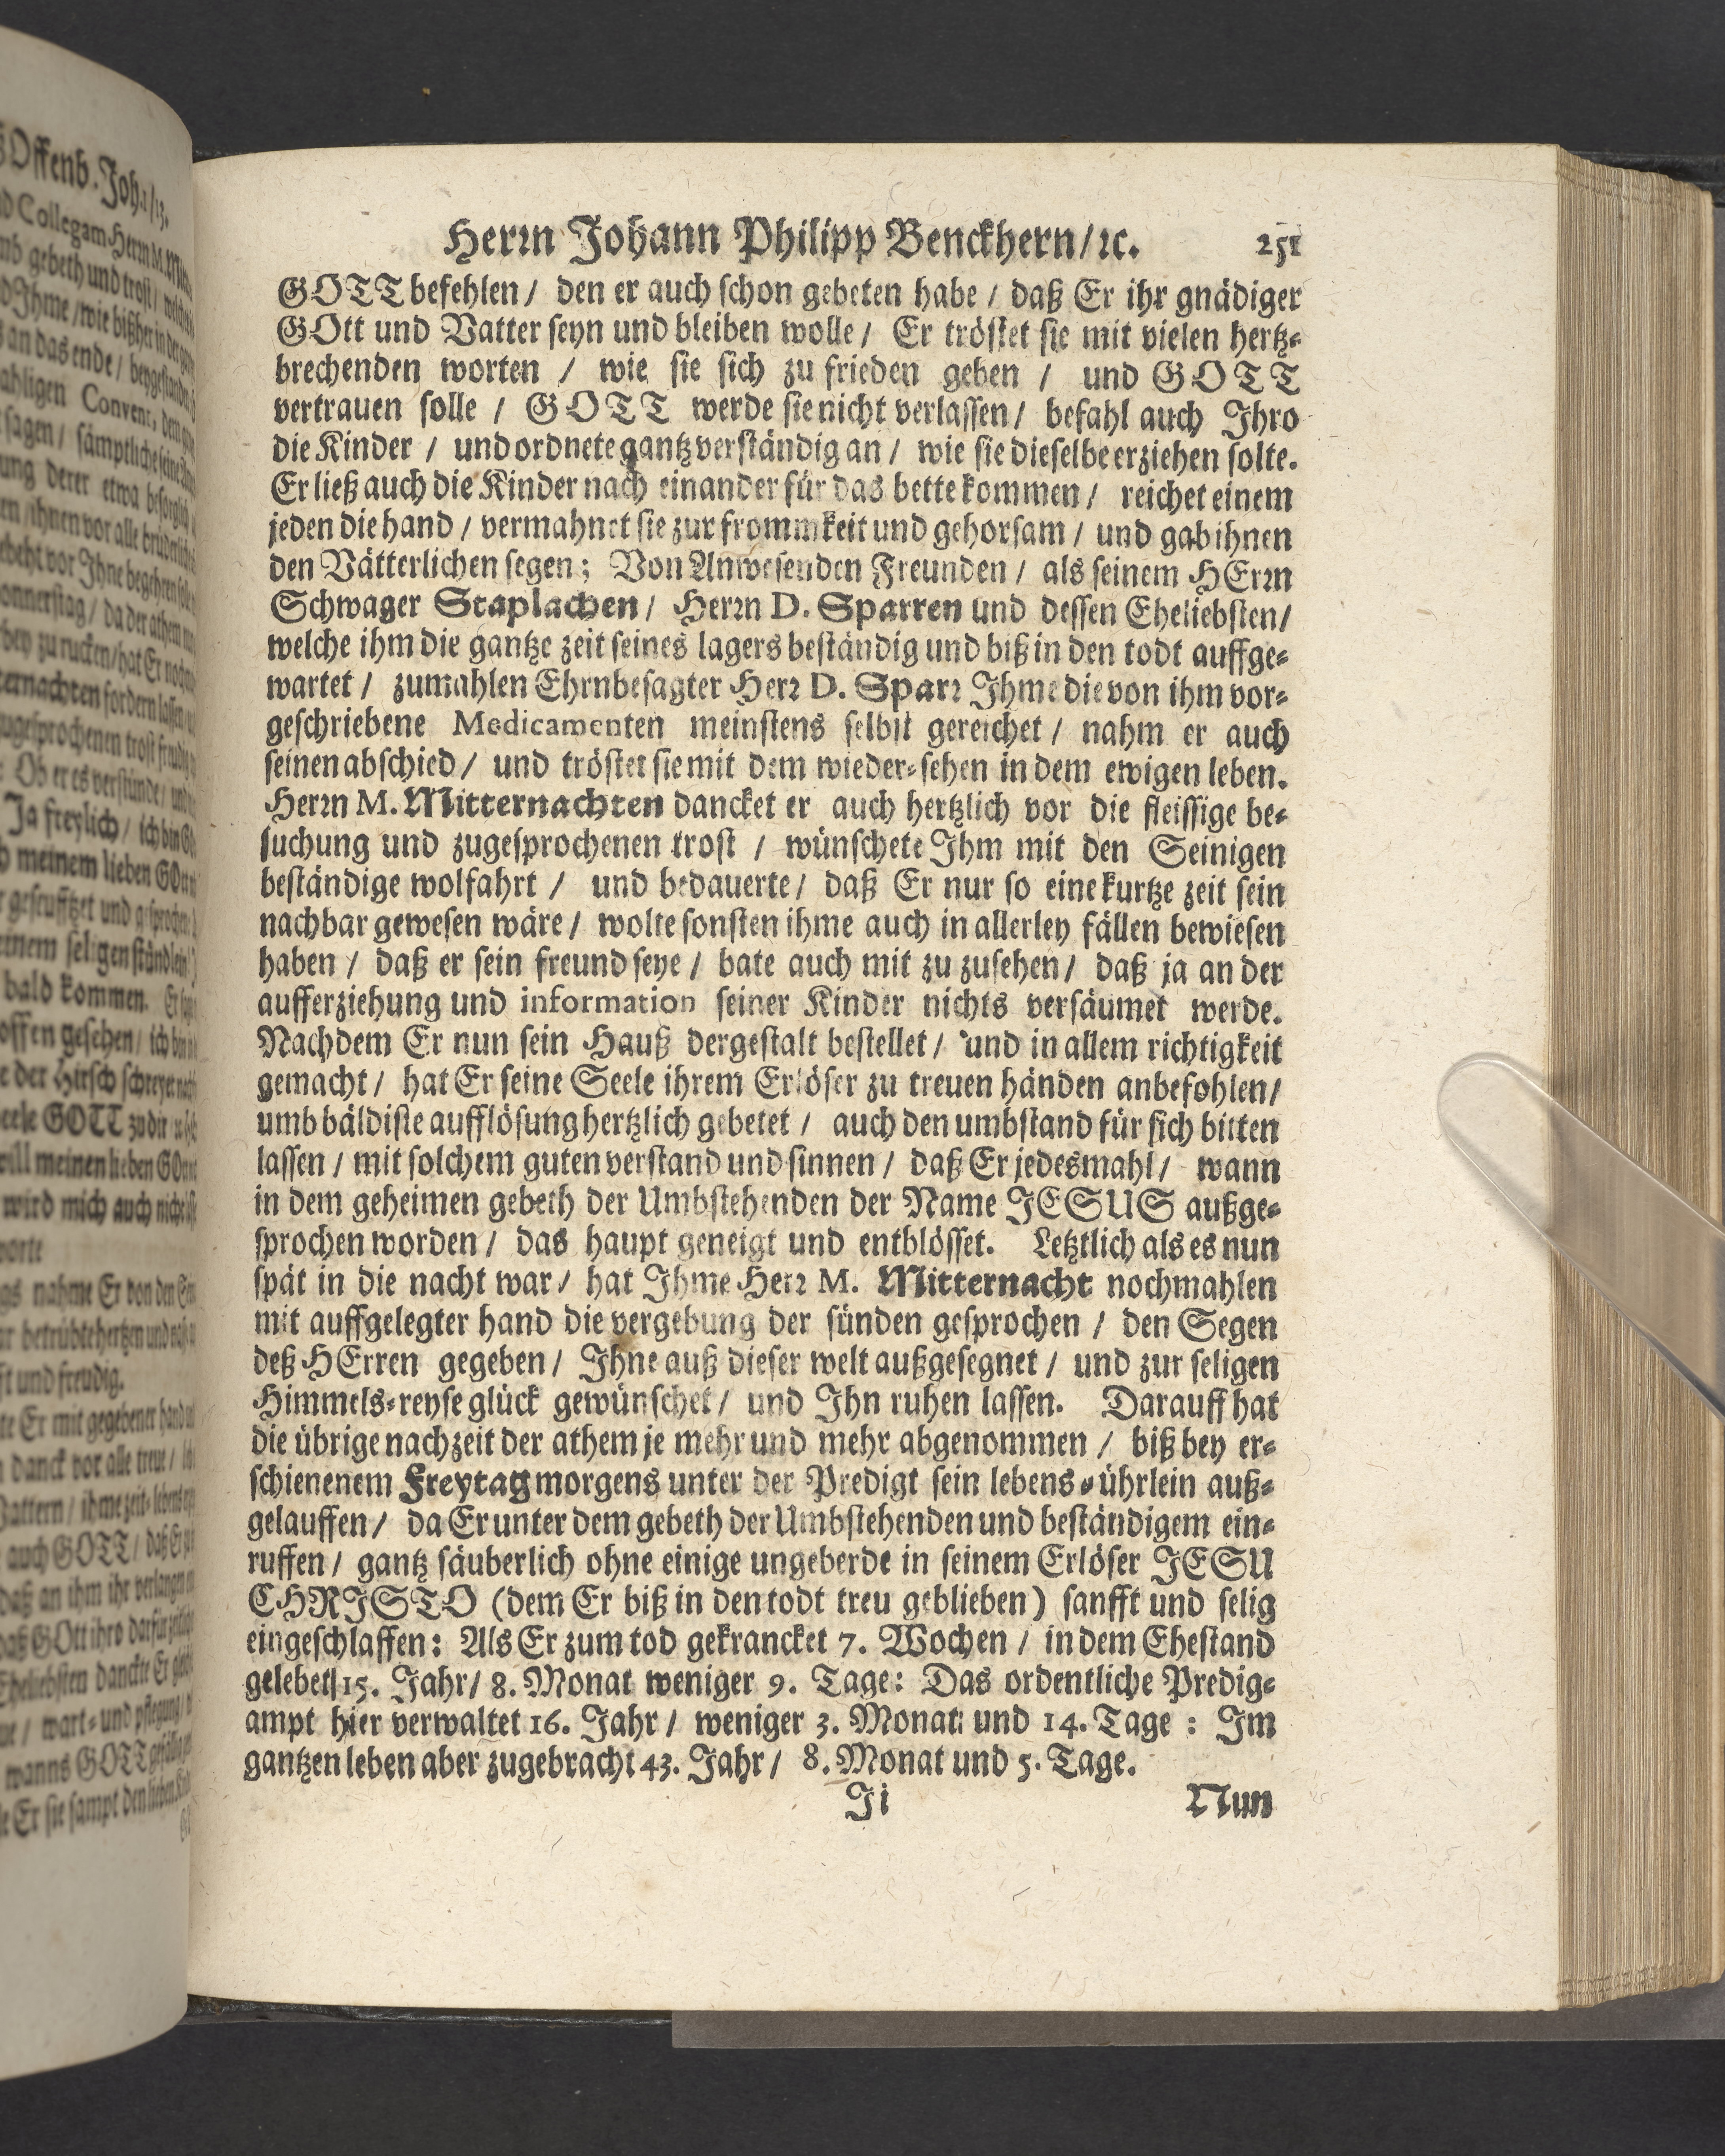 Herꝛn Johann Philipp Benckhern/ ꝛc. 251
GOTT befehlen/ den er auch ſchon gebeten habe / daß Er ihr gnädiger
GOtt und Vatter ſeyn und bleiben wolle / Er tröſtet ſie mit vielen hertz-
brechenden worten / wie ſie ſich zu frieden geben / und GOTT
vertrauen ſolle / GOTT werde ſie nicht verlaſſen / befahl auch Ihro
die Kinder / und ordnete gantz verſtändig an / wie ſie dieſelbe erziehen ſolte.
Er ließ auch die Kinder nach einander für das bette kommen / reichet einem
jeden die hand / vermahnet ſie zur frommkeit und gehorſam / und gab ihnen
den Vätterlichen ſegen; Von Anweſenden Freunden / als ſeinem HErꝛn
Schwager Staplachen / Herꝛn D. Sparren und deſſen Eheliebſten /
welche ihm die gantze zeit ſeines lagers beſtändig und biß in den todt auffge-
wartet / zumahlen Ehrnbeſagter Herꝛ D. Sparꝛ Ihme die von ihm vor-
geſchriebene Medicamenten meinſtens ſelbſt gereichet / nahm er auch
ſeinen abſchied / und tröſtet ſie mit dem wieder-ſehen in dem ewigen leben.
Herꝛn M. Mitternachten dancket er auch hertzlich vor die fleiſſige be-
ſuchung und zugeſprochenen troſt / wünſchete Ihm mit den Seinigen
beſtändige wolfahrt / und bedauerte / daß Er nur ſo eine kurtze zeit ſein
nachbar geweſen wäre / wolte ſonſten ihme auch in allerley fällen bewieſen
haben / daß er ſein freund ſeye / bate auch mit zu zuſehen / daß ja an der
aufferziehung und information ſeiner Kinder nichts verſäumet werde.
Nachdem Er nun ſein Hauß dergeſtalt beſtellet / und in allem richtigkeit
gemacht / hat Er ſeine Seele ihrem Erlöſer zu treuen händen anbefohlen /
umb bäldiſte aufflöſung hertzlich gebetet / auch den umbſtand für ſich bitten
laſſen / mit ſolchem guten verſtand und ſinnen / daß Er jedesmahl / wann
in dem geheimen gebeth der Umbſtehenden der Name JESUS außge-
ſprochen worden / das haupt geneigt und entblöſſet. Letztlich als es nun
ſpät in die nacht war / hat Ihme Herꝛ M. Mitternacht nochmahlen
mit auffgelegter hand die vergebung der ſünden geſprochen / den Segen
deß HErren gegeben / Ihne auß dieſer welt außgeſegnet / und zur ſeligen
Himmels-reyſe glück gewünſchet / und Ihn ruhen laſſen. Darauff hat
die übrige nachzeit der athem je mehr und mehr abgenommen / biß bey er-
ſchienenem Freytag morgens unter der Predigt ſein lebens-ührlein auß-
gelauffen / da Er unter dem gebeth der Umbſtehenden und beſtändigem ein-
ruffen / gantz ſäuberlich ohne einige ungeberde in ſeinem Erlöſer JESU
CHRISTO (dem Er biß in den todt treu geblieben) ſanfft und ſelig
eingeſchlaffen: Als Er zum tod gekrancket 7. Wochen / in dem Eheſtand
gelebet/15. Jahr / 8. Monat weniger 9. Tage: Das ordentliche Predig-
ampt hier verwaltet 16. Jahr / weniger 3. Monat und 14. Tage : Im
gantzen leben aber zugebracht 43. Jahr / 8. Monat und 5. Tage.
Ji Nun